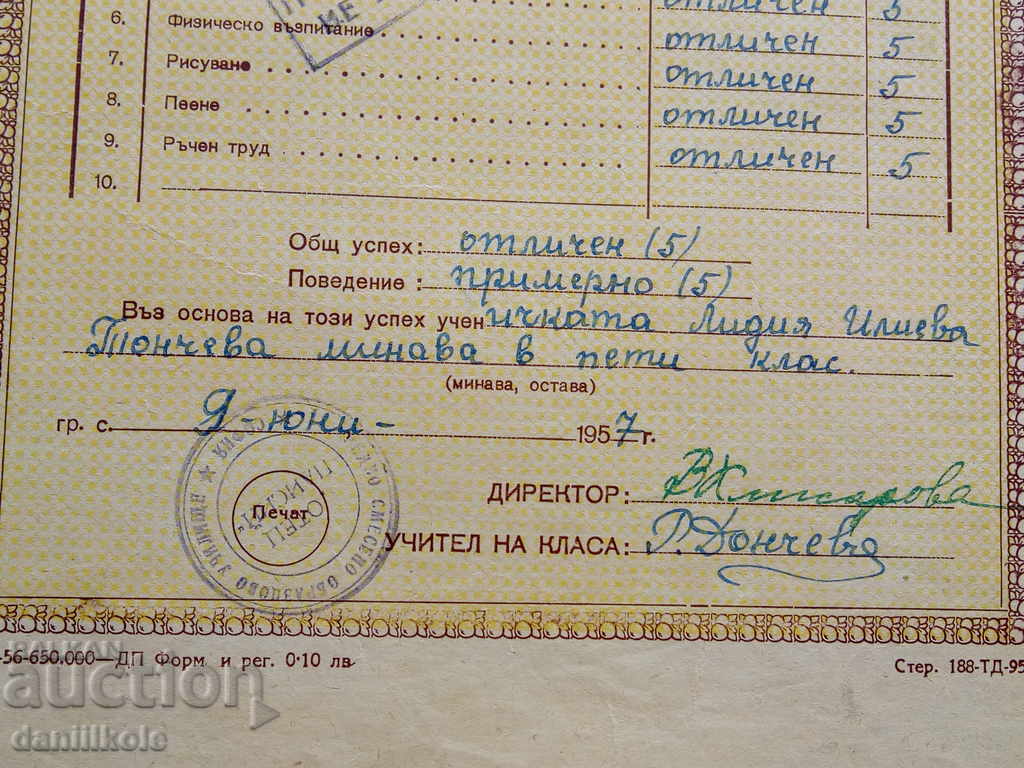 отличен 5
6. Физическо възпитание отличен 5
7. Рисуване отличен 5
8. Пеене отличен 5
9. Ръчен труд отличен 5
10.
Общ успех: отличен (5)
Поведение: примерно (5)
Въз основа на този успех ученичката Лидия Илиева
Тончева минава в пети клас.
(минава, остава)
гр. с. 9-юни- 1957 г.
ДИРЕКТОР:
Печат
УЧИЛИЩЕ ★
СМЕСЕНО ОБРАЗЦОВО
ОТЕЦ
ПАИСИЙ
УЧИТЕЛ НА КЛАСА: Р. Дончева
-56-650.000—ДП Форм и рег. 0·10 лв.
Стер. 188-ТД-95
BALKAN
auction
daniilkole